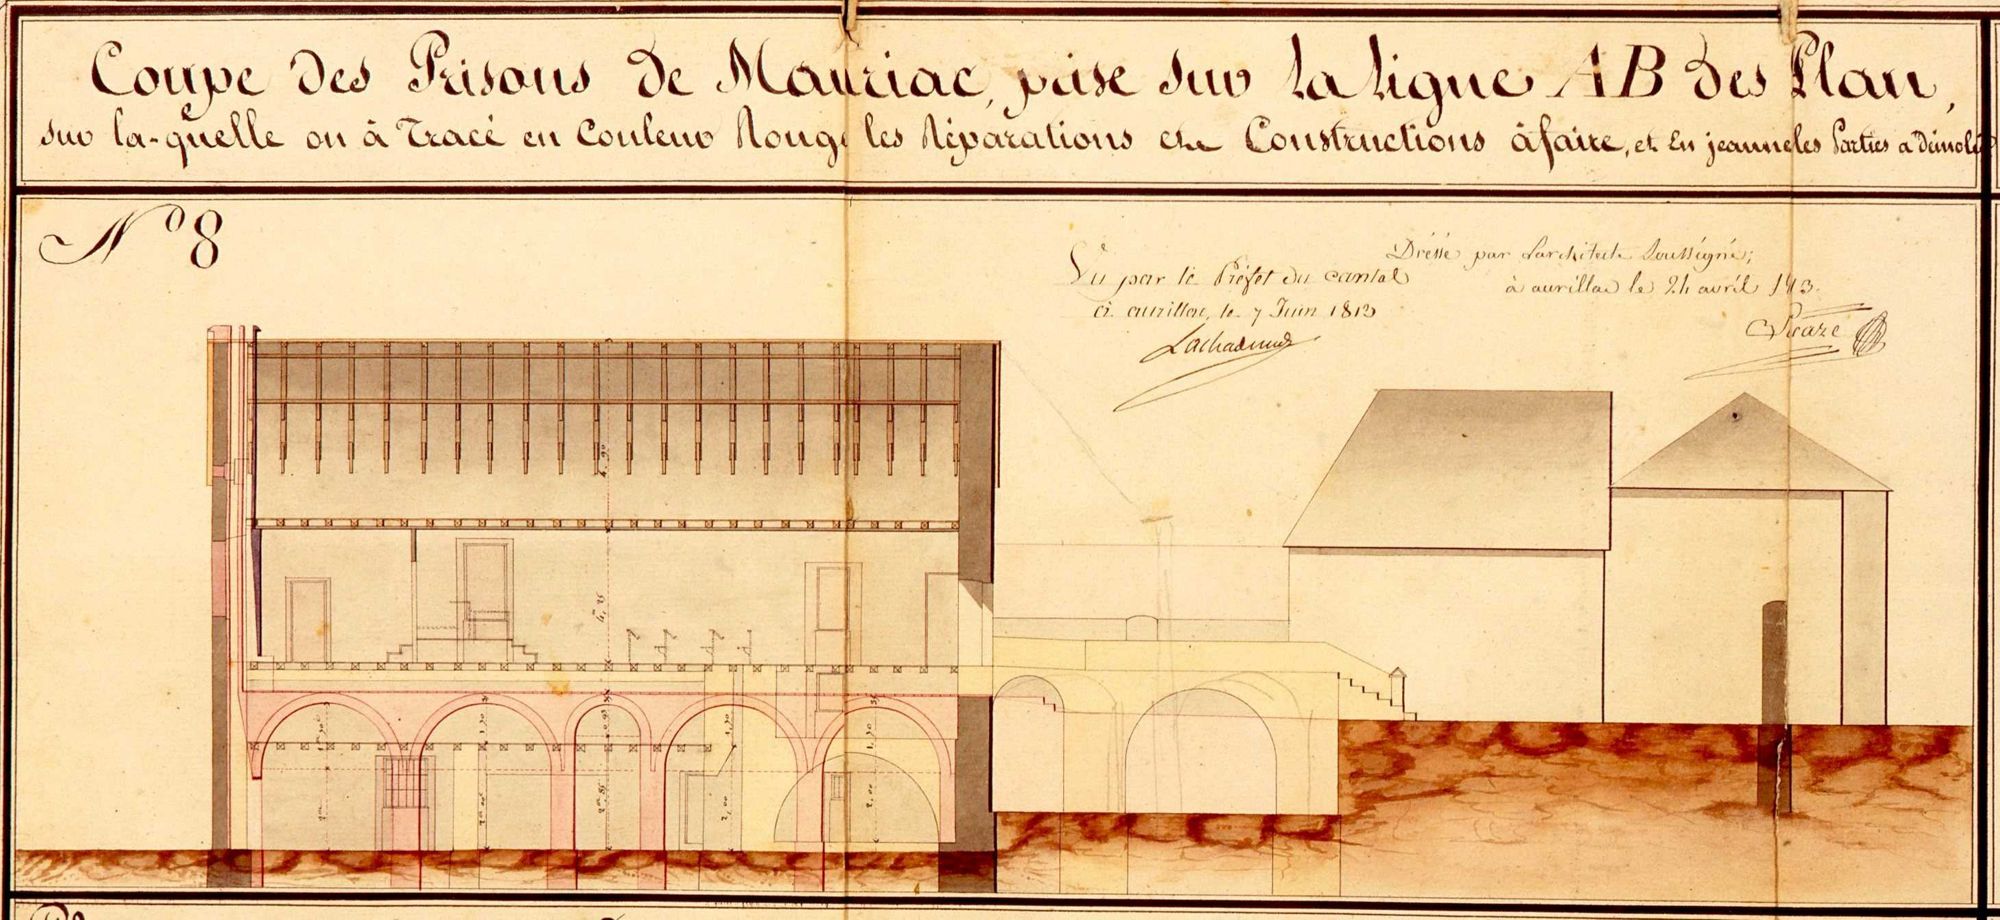 Coupe des Prisons de Mauriac, prise sur la ligne AB des Plan,
sur la-quelle on à Tracé en Couleur Rouge les Réparations et Constructions à faire, et En jeaune les Parties a Démolir
N° 8
Vu par le Préfet du cantal
à aurillac, le 7 Juin 1813
Dréssé par Larchitecte Soussigné;
à aurillac le 24 avril 1813.
4,25
2,00
2,00
2,00